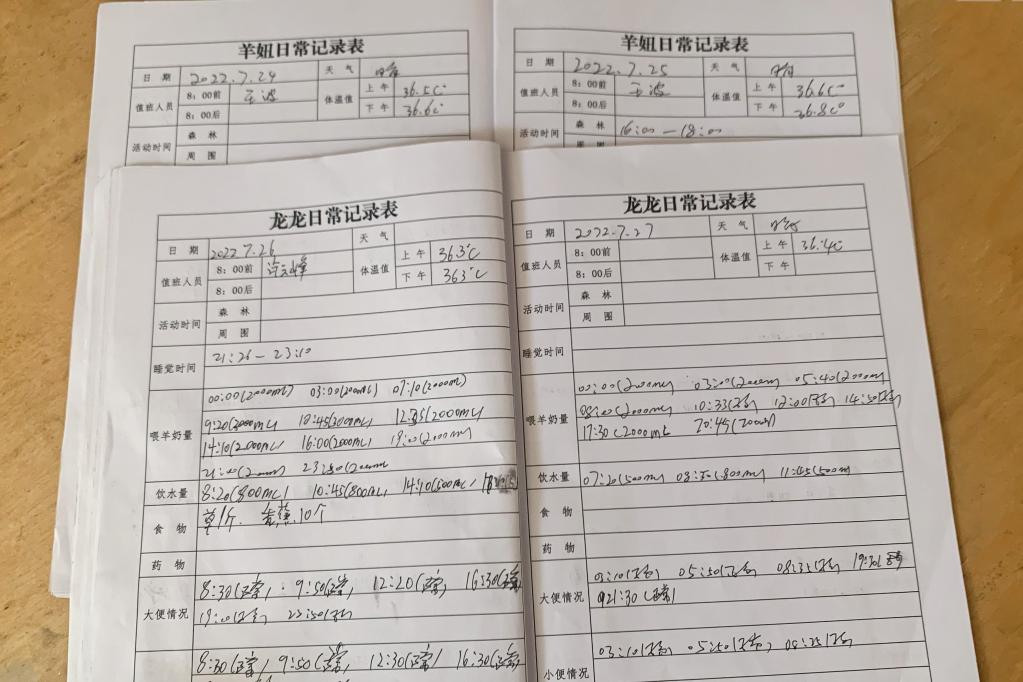 羊妞日常记录表
日 期 2022.7.24 天 气 晴
值班人员 8：00前 王波 体温值 上 午 36.5C°
8：00后 下 午 36.6C°
活动时间 森 林
周 围
羊妞日常记录表
日 期 2022.7.25 天 气 晴
值班人员 8：00前 王波 体温值 上 午 36.6C°
8：00后 下 午 36.8C°
活动时间 森 林 16:00—18:00
龙龙日常记录表
日 期 2022 7.26 天 气
值班人员 8：00前 体温值 上 午 36.3°C
8：00后 下 午 36.3°C
活动时间 森 林
周 围
睡觉时间 21:26—23:10
喂羊奶量 00:00(2000mL) 03:00(2000mL) 07:10(2000mL)
9:20(2000mL) 10:45(2000mL) 12:35(2000mL)
14:10(2000mL) 16:00(2000mL) 19:00(2000mL)
21:00(2000mL) 23:50(2000mL)
饮水量 8:20(800mL) 10:45(800mL) 14:10(500mL)
食 物 草1斤、香蕉10个
药 物
大便情况 8:30(正常) 9:50(正常) 12:20(正常) 16:30(正常)
19:00(正常) 23:50(正常)
8:30(正常) 9:50(正常) 12:30(正常) 16:30(正常)
龙龙日常记录表
日 期 2022.7.27 天 气 晴
值班人员 8：00前 体温值 上 午 36.4C
8：00后 下 午
活动时间 森 林
周 围
睡觉时间
喂羊奶量 00:00(2000mL) 03:00(2000mL) 05:40(2000mL)
08:00(2000mL) 10:33 12:00 14:50
17:30(2000mL 20:45(2000mL)
饮水量 07:20(500mL) 08:50(800mL) 11:45(500mL
食 物
药 物
大便情况 03:10(正常) 05:50(正常) 08:35(正常) 19:30(正常
21:30(正常)
小便情况 03:10(正常) 05:50(正常) 08:25(正常)